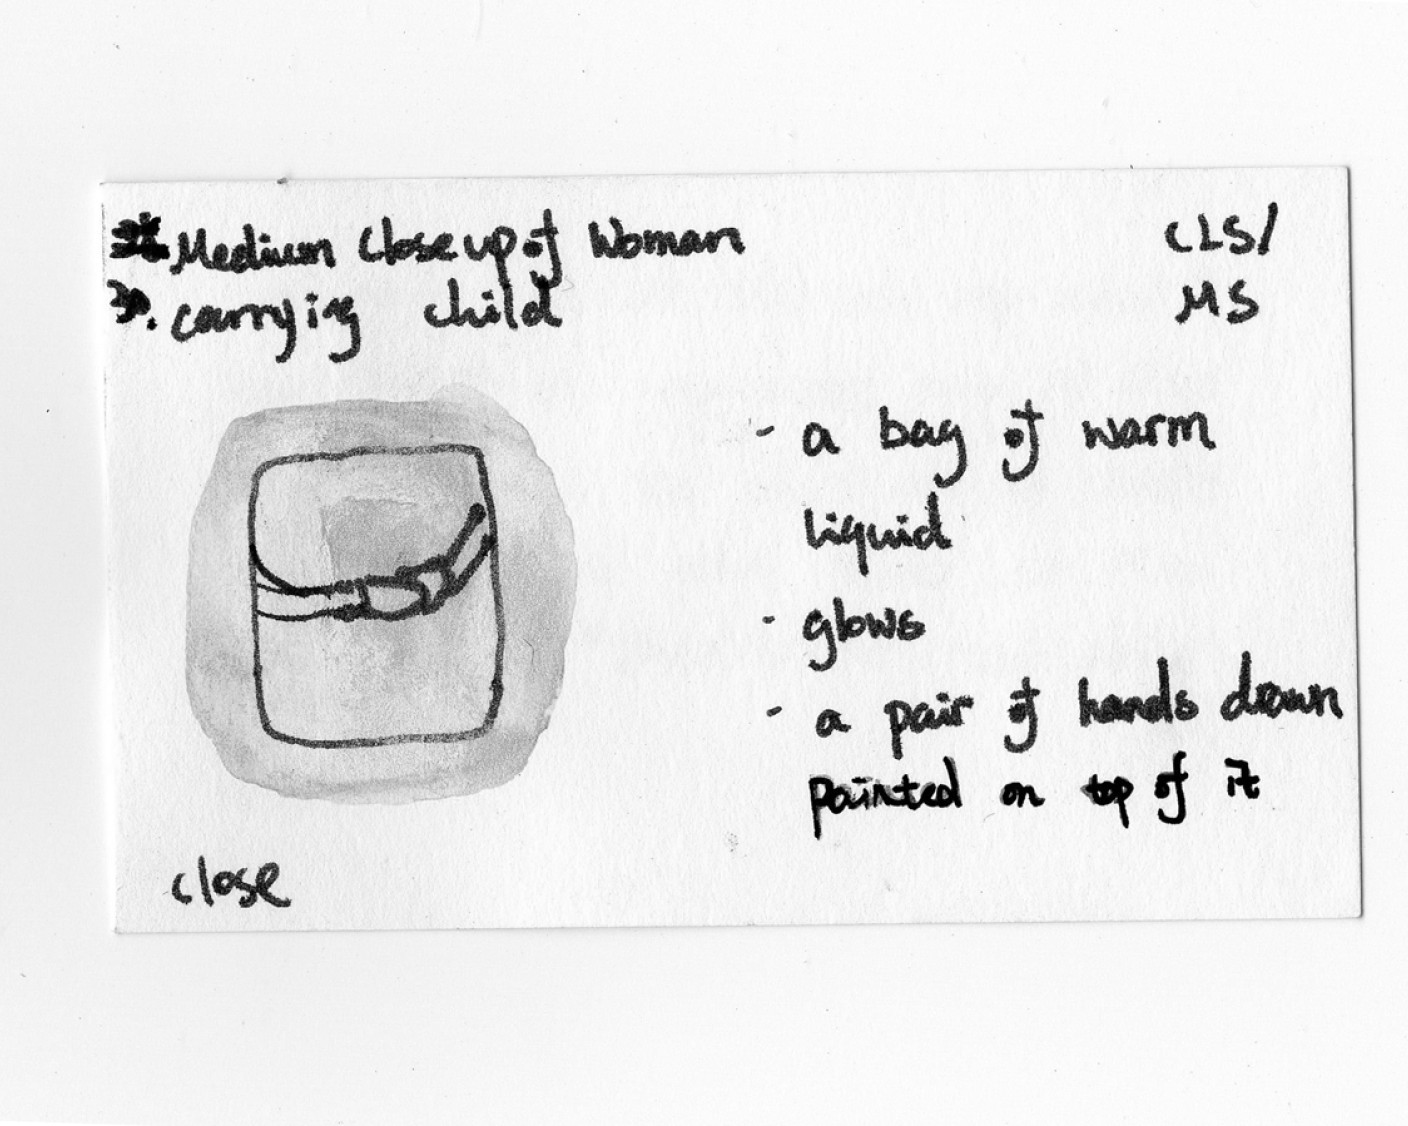 Medium Close up of Woman
30. carrying child
CLS/
MS
- a bag of warm
liquid
- glows
- a pair of hands drawn
painted on top of it
close